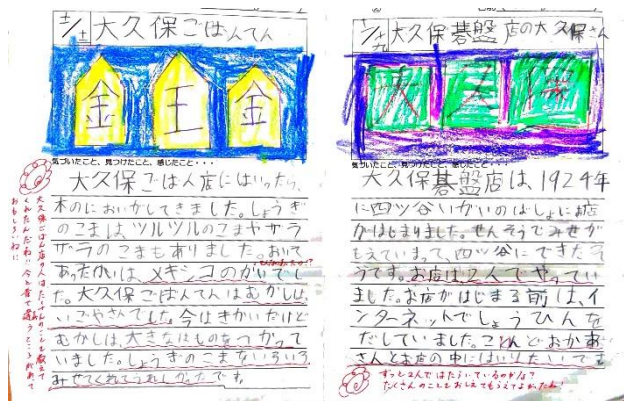 大久保ごばんてん
金 王 金
気づいたこと、見つけたこと、感じたこと・・・
大久保ごばん店にはいったら、
木のにおいがしてきました。しょうぎ
のこまは、ツルツルのこまやザラ
ザラのこまもありました。おいて
あったかいは、メキシコのかいでし
た。大久保ごばんてんはむかしは、
いごやさんでした。今はきかいだけど
むかしは、大きなはものをつかって
いました。しょうぎのこまをいろいろ
みせてくれてうれしかったです。
大久保ごばん店の人はたくさんのことを教えて
くれたんだね!!今と昔で
おもしろいね!!
大久保碁盤店の大久保さん
大 久 保
気づいたこと、見つけたこと、感じたこと・・・
大久保碁盤店は、1924年
に四ツ谷いがいのばしょにお店
がはじまりました。せんそうでみせが
もえていまって、四ツ谷にできたそ
うです。お店は2人でやってい
ました。お店がはじまる前は、イ
ンターネットでしょうひんを
だしていました。こんどおかあ
さんとお店の中にはいりたいです
ずっと2人ではたらいているのかな?
たくさんのことをおしえてもらえてよかったね!